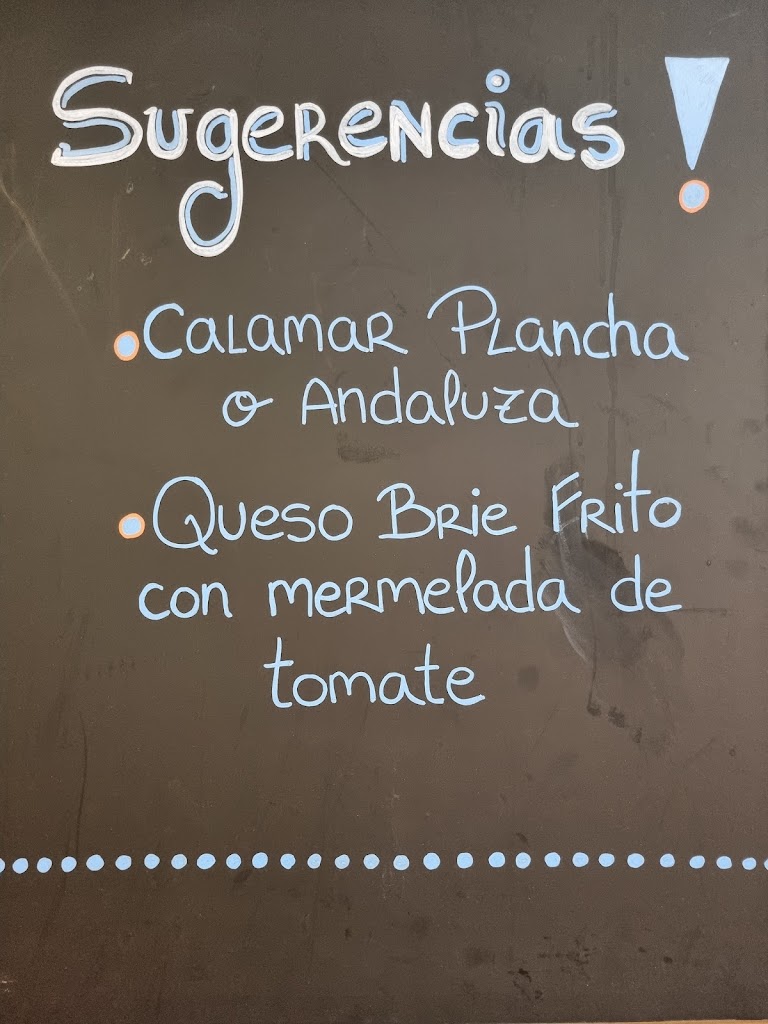 Sugerencias !
• Calamar Plancha
o Andaluza
• Queso Brie Frito
con mermelada de
tomate